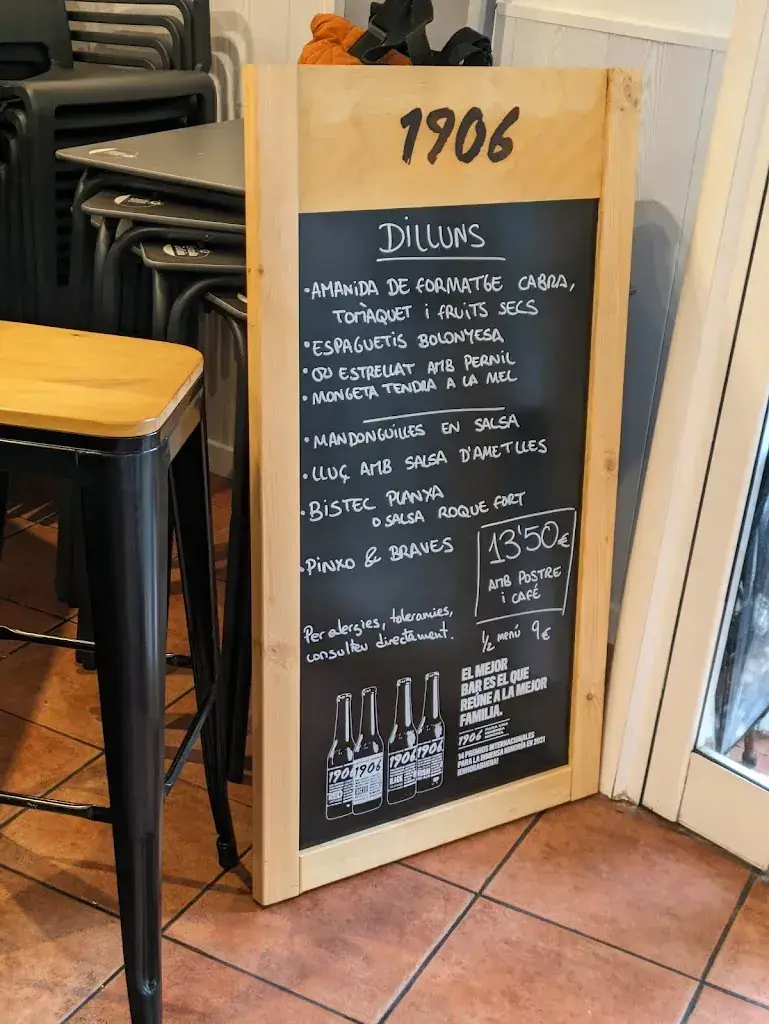 1906
DILLUNS
•AMANIDA DE FORMATGE CABRA,
TOMÀQUET i FRUITS SECS
•ESPAGUETIS BOLONYESA
•OU ESTRELLAT AMB PERNIL
•MONGETA TENDRA A LA MEL
•MANDONGUILLES EN SALSA
•LLUÇ AMB SALSA D'AMETLLES
•BISTEC PLANXA
O SALSA ROQUE FORT
•PINXO & BRAVES
13'50€
AMB POSTRE
i CAFÉ
Per alergies, tolerancies,
consulteu directament.
1/2 menú 9€
EL MEJOR
BAR ES EL QUE
REÚNE A LA MEJOR
FAMILIA.
1906
14 PREMIOS INTERNACIONALES
PARA LA INMENSA MINORÍA EN 2021
¡ENHORABUENA!
1906
1906
1906
1906
BLACK